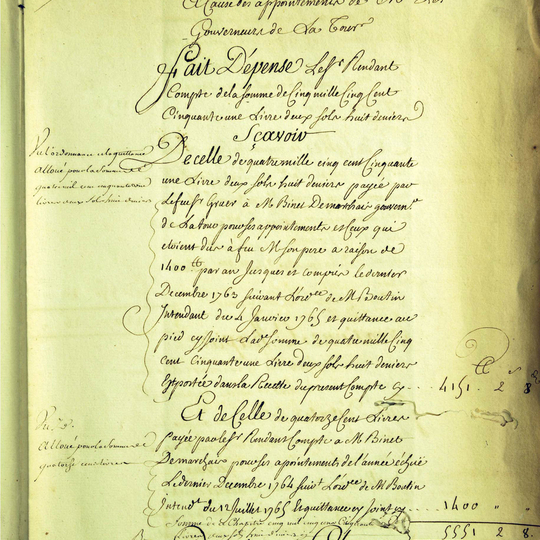 acause des appointements de
Gouverneurs de La Tour
Fait Dépense Led.t S.r Rendant
Compte de la Somme de Cinq mille Cinq Cent
Cinquante une Livre deux sols huit deniers
Sçavoir
De celle de quatre mille cinq cent Cinquante
une Livre deux Sols huit deniers payée par
led. feu S.r à M. Binet Demarchais gouvern.r
de Latour pour ses appointements et Ceux qui
etoient dus à feu M. Son pere a raison de
1400 tt par an Jusques et compris le dernier
Decembre 1763 Suivant L'ord.ce de M. Boutin
Intendant du 4 Janvier 1765 et quittance au
pied cy Joint Lad. Somme de quatre mille Cinq
cent Cinquante une Livre deux Sols huit deniers
Apportée dans la Recette du present Compte cy ... 4551 . 2 8
Vu l'ordonnance et la quittance
alloué pour la somme de
quatre mil cinq cens cinquante une
livres deux sols huit deniers
Et de Celle de quatorze Cent Livres
Payée par led. S.r Rendant Compte a M. Binet
Demarchais pour ses apointements de l'année echüe
Le dernier Decembre 1764 Suiv.t L'ord.ce de M. Boutin
Intend.t du 12 Juillet 1765 Et quittance cy Joint cy ... 1400 " "
Vu id.
Alloué pour la somme de
quatorze cens livres
Somme de ce Chapitre cinq mil cinq cens Cinquante
5551 2 8.